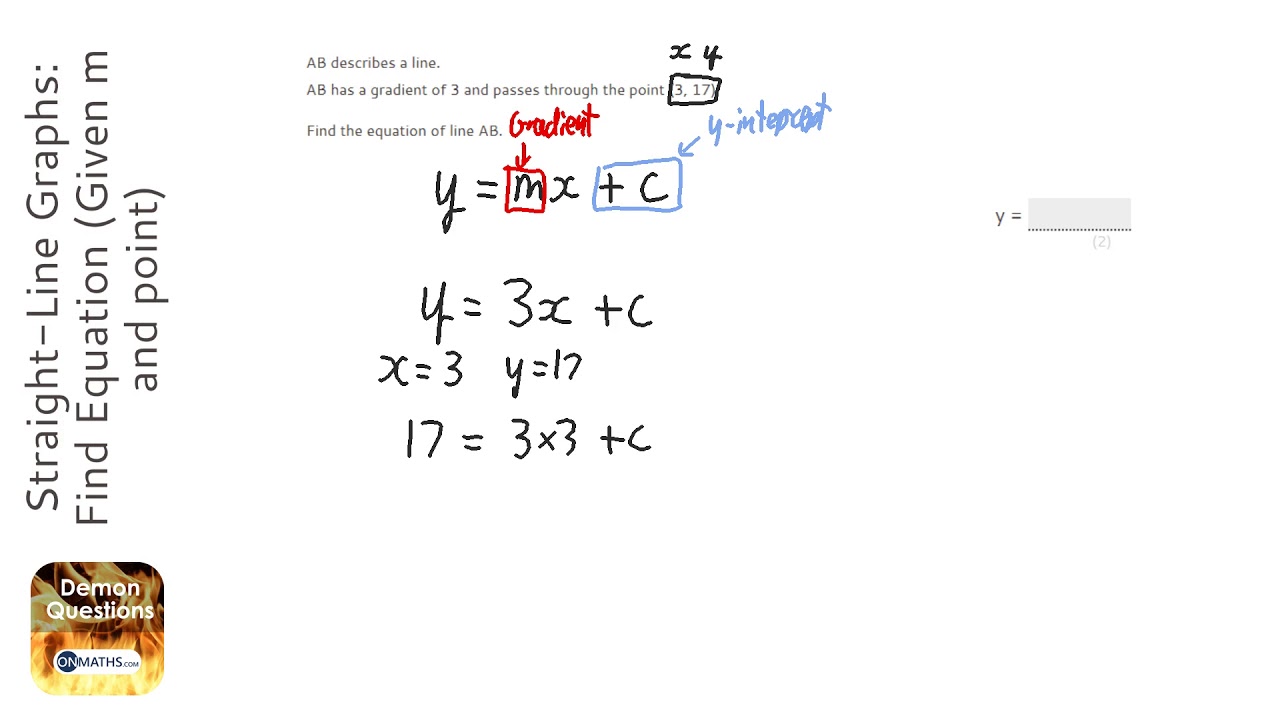 Straight-Line Graphs:
Find Equation (Given m
and point)
x y
AB describes a line.
AB has a gradient of 3 and passes through the point (3, 17)
Find the equation of line AB.
Gradient
y-intercept
y = mx + c
y = 3x + c
x = 3 y = 17
17 = 3 × 3 + c
y =
(2)
Demon
Questions
ONMATHS.COM